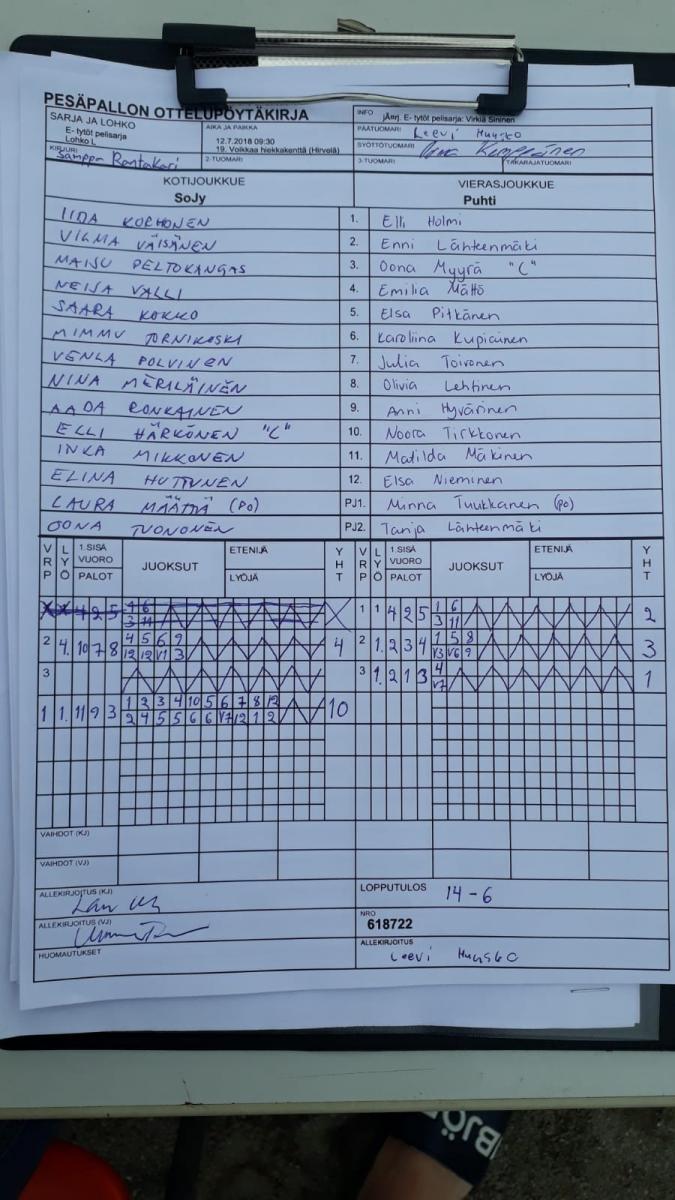 PESÄPALLON OTTELUPÖYTÄKIRJA
SARJA JA LOHKO
E- tytöt pelisarja
Lohko L
AIKA JA PAIKKA
12.7.2018 09:30
19. Voikkaa hiekkakenttä (Hirvelä)
INFO jÄnrj. E- tytöt pelisarja: Virkiä Sininen
PÄÄTUOMARI Leevi Huusko
KIRJURI Samppa Rantakari
2-TUOMARI
SYÖTTÖTUOMARI
3-TUOMARI
TAKARAJATUOMARI
KOTIJOUKKUE VIERASJOUKKUE
SoJy Puhti
IIDA KORHONEN 1. Elli Holmi
VILMA VÄISÄNEN 2. Enni Lähteenmäki
MAISU PELTOKANGAS 3. Oona Myyrä "C"
NEIJA VALLI 4. Emilia Mättö
SAARA KOKKO 5. Elsa Pitkänen
MIMMU TORNIKOSKI 6. Karoliina Kupiainen
VENLA POLVINEN 7. Julia Toivonen
NINA MERILÄINEN 8. Olivia Lehtinen
AADA RONKAINEN 9. Anni Hyvärinen
ELLI HÄRKÖNEN "C" 10. Noora Tirkkonen
INKA MIKKONEN 11. Matilda Mäkinen
ELINA HUTTUNEN 12. Elsa Nieminen
LAURA MÄÄTTÄ (PO) PJ1. Minna Tuukkanen (po)
OONA TUONONEN PJ2. Tanja Lähteenmäki
VRP LYÖ 1.SISÄ VUORO PALOT JUOKSUT ETENIJÄ LYÖJÄ YHT VRP LYÖ 1.SISÄ VUORO PALOT JUOKSUT ETENIJÄ LYÖJÄ YHT
4 2 5 1 6 X 1 1 4 2 5 1 6 2
3 11 3 11
2 4. 10 7 8 4 5 6 9 4 2 1. 2 3 4 1 5 8 3
12 12 V1 3 V3 V6 9
3 3 1. 2 1 3 4 1
V7
1 1. 11 9 3 1 2 3 4 10 5 6 7 8 12 10
2 4 5 5 6 6 V7 12 1 2
VAIHDOT (KJ)
VAIHDOT (VJ)
ALLEKIRJOITUS (KJ)
LOPPUTULOS 14-6
ALLEKIRJOITUS (VJ)
NRO
618722
HUOMAUTUKSET
ALLEKIRJOITUS
Leevi Huusko
BJÖ